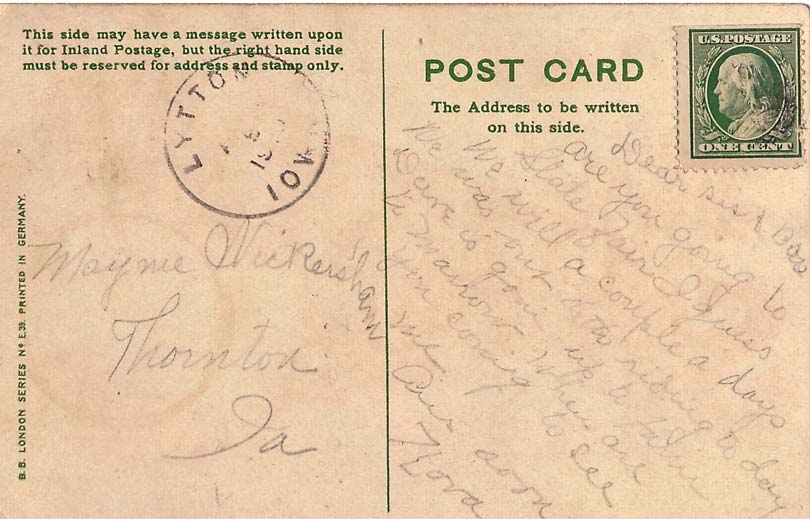 This side may have a message written upon
it for Inland Postage, but the right hand side
must be reserved for address and stamp only.
LYTTON
IOWA
POST CARD
The Address to be written
on this side.
U.S. POSTAGE
ONE CENT
B. B. LONDON SERIES No E.39. PRINTED IN GERMANY.
Mayme Wickersham
Thornton
Ia
Dear sis & Bro
are you going to
State Fair I guess
We will a couple a days
We was out auto riding to day
Dave is gone up to farm
to Marlow When are
you coming to see
me Ans soon
Flora